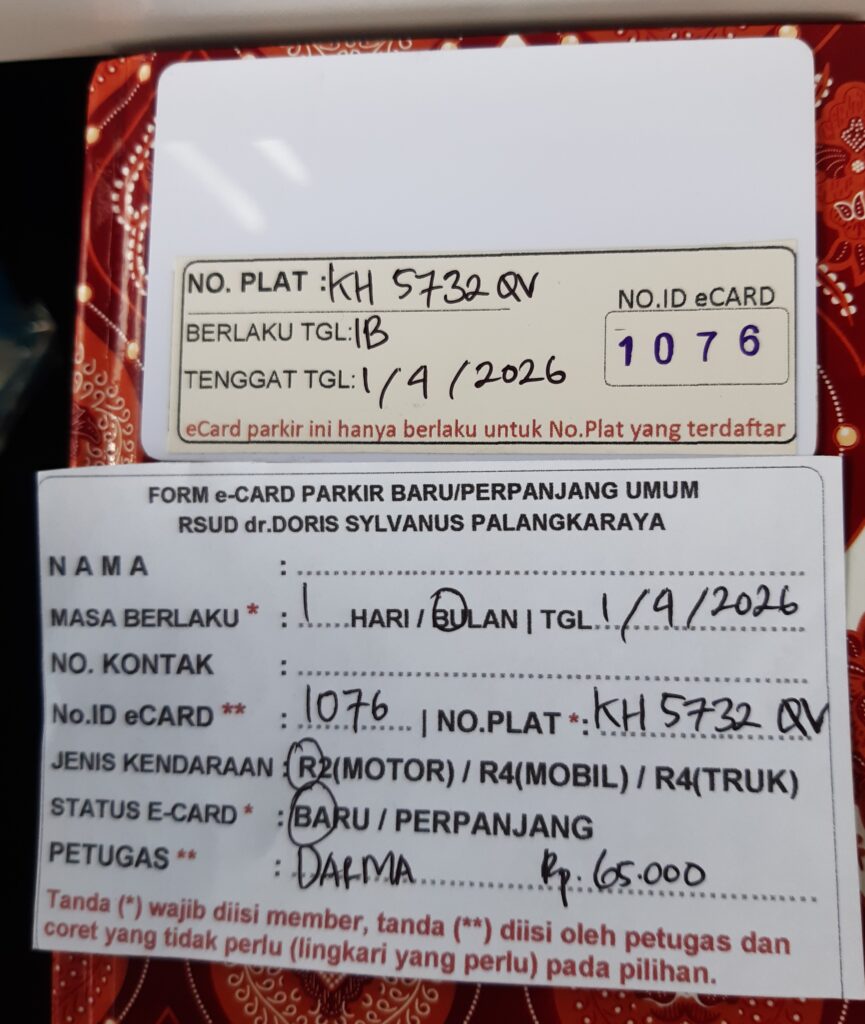 NO. PLAT : KH 5732 QV
NO.ID eCARD
BERLAKU TGL: 1B
1076
TENGGAT TGL: 1/4/2026
eCard parkir ini hanya berlaku untuk No.Plat yang terdaftar
FORM e-CARD PARKIR BARU/PERPANJANG UMUM
RSUD dr.DORIS SYLVANUS PALANGKARAYA
NAMA :
MASA BERLAKU * : 1 HARI / BULAN | TGL 1/4/2026
NO. KONTAK :
No.ID eCARD ** : 1076 | NO.PLAT *: KH 5732 QV
JENIS KENDARAAN : R2(MOTOR) / R4(MOBIL) / R4(TRUK)
STATUS E-CARD * : BARU / PERPANJANG
PETUGAS ** : DARMA Rp. 65.000
Tanda (*) wajib diisi member, tanda (**) diisi oleh petugas dan
coret yang tidak perlu (lingkari yang perlu) pada pilihan.